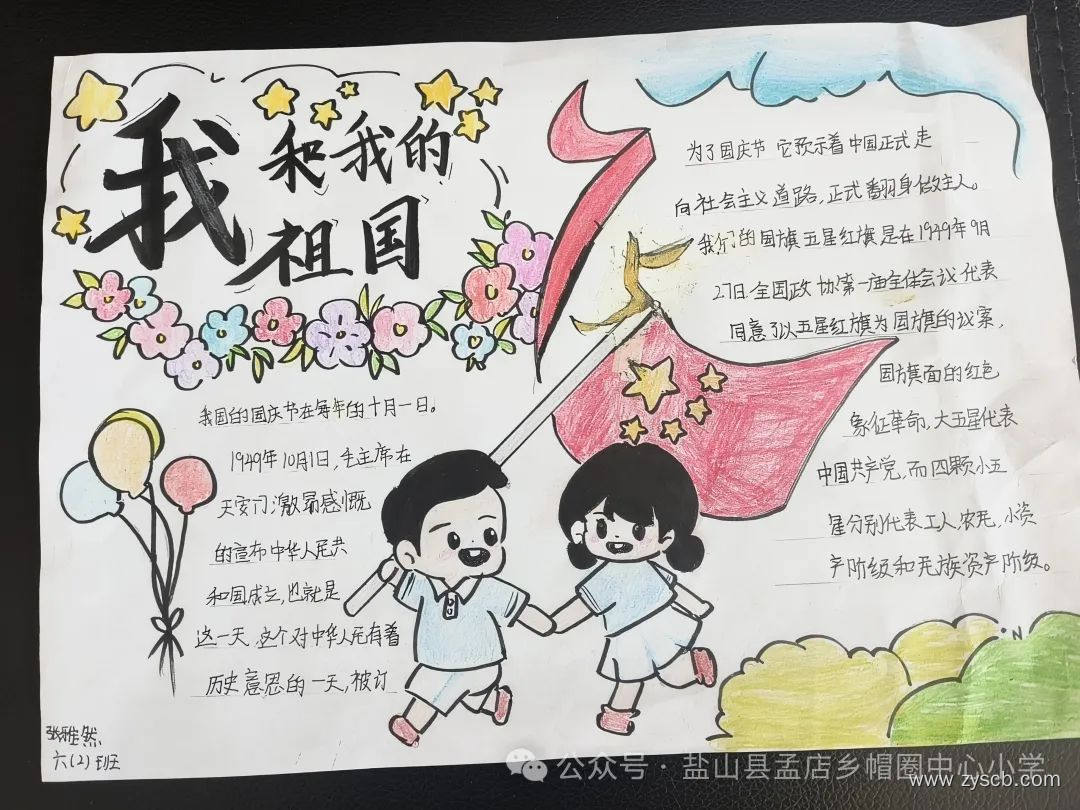 我和我的
祖国
我国的国庆节在每年的十月一日。
1949年10月1日,毛主席在
天安门激昂感慨
的宣布中华人民共
和国成立,也就是
这一天,这个对中华人民有着
历史意思的一天,被订
为了国庆节它预示着中国正式走
向社会主义道路,正式翻身做主人。
我们的国旗五星红旗是在1949年9月
27日全国政协第一届全体会议代表
同意了以五星红旗为国旗的议案,
国旗面的红色
象征革命,大五星代表
中国共产党,而四颗小五
星分别代表工人,农民,小资
产阶级和民族资产阶级。
张雅然
六(2)班
公众号·盐山县孟店乡帽圈中心小学
www.zyscb.com